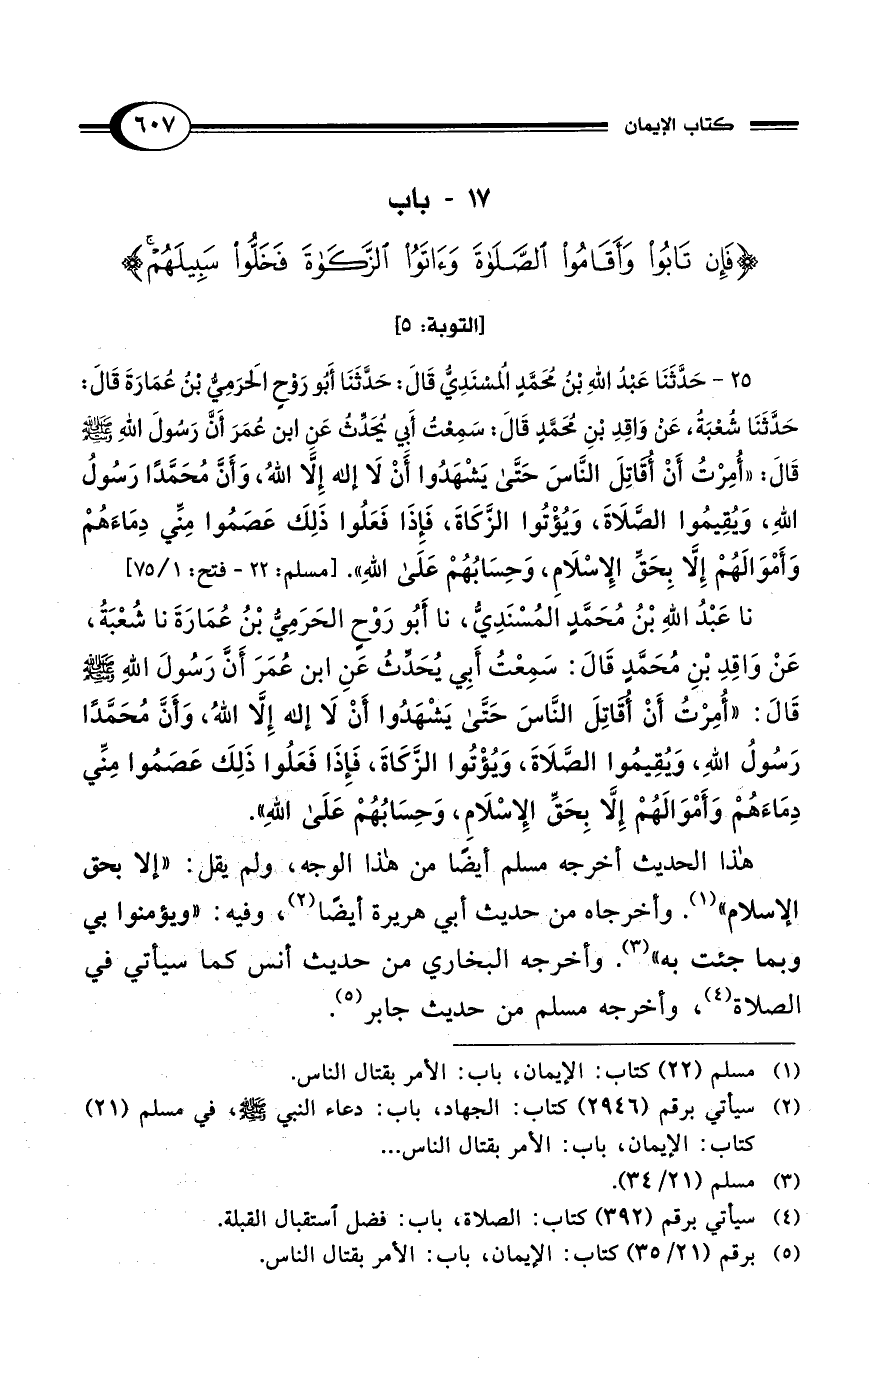 كتاب الإيمان ٦٠٧
١٧ - باب
﴿فَإِن تَابُوا۟ وَأَقَامُوا۟ ٱلصَّلَوٰةَ وَءَاتَوُا۟ ٱلزَّكَوٰةَ فَخَلُّوا۟ سَبِيلَهُمْۚ﴾
[التوبة: ٥]
٢٥ - حَدَّثَنَا عَبْدُ اللهِ بْنُ مُحَمَّدٍ المُسْنَدِيُّ قَالَ: حَدَّثَنَا أَبُو رَوْحٍ الحَرَمِيُّ بْنُ عُمَارَةَ قَالَ:
حَدَّثَنَا شُعْبَةُ، عَنْ وَاقِدِ بْنِ مُحَمَّدٍ قَالَ: سَمِعْتُ أَبِي يُحَدِّثُ عَنِ ابن عُمَرَ أَنَّ رَسُولَ اللهِ ﷺ
قَالَ: «أُمِرْتُ أَنْ أُقَاتِلَ النَّاسَ حَتَّىٰ يَشْهَدُوا أَنْ لَا إله إِلَّا اللهُ، وَأَنَّ مُحَمَّدًا رَسُولُ
اللهِ، وَيُقِيمُوا الصَّلَاةَ، وَيُؤْتُوا الزَّكَاةَ، فَإِذَا فَعَلُوا ذَلِكَ عَصَمُوا مِنِّي دِمَاءَهُمْ
وَأَمْوَالَهُمْ إِلَّا بِحَقِّ الإِسْلَامِ، وَحِسَابُهُمْ عَلَىٰ اللهِ». [مسلم: ٢٢ - فتح: ١/ ٧٥]
نا عَبْدُ اللهِ بْنُ مُحَمَّدٍ المُسْنَدِيُّ، نا أَبُو رَوْحٍ الحَرَمِيُّ بْنُ عُمَارَةَ نا شُعْبَةُ،
عَنْ وَاقِدِ بْنِ مُحَمَّدٍ قَالَ: سَمِعْتُ أَبِي يُحَدِّثُ عَنِ ابن عُمَرَ أَنَّ رَسُولَ اللهِ ﷺ
قَالَ: «أُمِرْتُ أَنْ أُقَاتِلَ النَّاسَ حَتَّىٰ يَشْهَدُوا أَنْ لَا إله إِلَّا اللهُ، وَأَنَّ مُحَمَّدًا
رَسُولُ اللهِ، وَيُقِيمُوا الصَّلَاةَ، وَيُؤْتُوا الزَّكَاةَ، فَإِذَا فَعَلُوا ذَلِكَ عَصَمُوا مِنِّي
دِمَاءَهُمْ وَأَمْوَالَهُمْ إِلَّا بِحَقِّ الإِسْلَامِ، وَحِسَابُهُمْ عَلَىٰ اللهِ».
هٰذا الحديث أخرجه مسلم أيضًا من هٰذا الوجه، ولم يقل: «إلا بحق
الإسلام»(١). وأخرجاه من حديث أبي هريرة أيضًا(٢)، وفيه: «ويؤمنوا بي
وبما جئت به»(٣). وأخرجه البخاري من حديث أنس كما سيأتي في
الصلاة(٤)، وأخرجه مسلم من حديث جابر(٥).
(١) مسلم (٢٢) كتاب: الإيمان، باب: الأمر بقتال الناس.
(٢) سيأتي برقم (٢٩٤٦) كتاب: الجهاد، باب: دعاء النبي ﷺ، في مسلم (٢١)
كتاب: الإيمان، باب: الأمر بقتال الناس...
(٣) مسلم (٢١/ ٣٤).
(٤) سيأتي برقم (٣٩٢) كتاب: الصلاة، باب: فضل ٱستقبال القبلة.
(٥) برقم (٢١/ ٣٥) كتاب: الإيمان، باب: الأمر بقتال الناس.